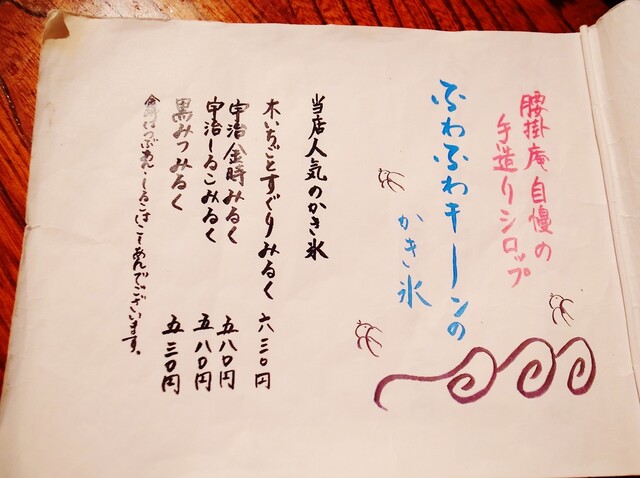 腰掛庵自慢の
手造りシロップ
ふわふわキーンの
かき氷
当店人気のかき氷
木いちごとすぐりみるく 六三〇円
宇治金時みるく 五八〇円
宇治しるこみるく 五八〇円
黒みつみるく 五三〇円
金時はつぶあん・しるこはこしあんでございます。